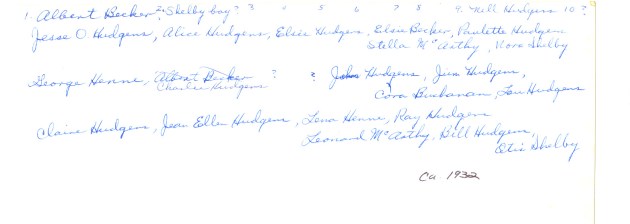 1. Albert Becker 2. Shelby boy? 3 4 5 6 7 8 9. Nell Hudgens 10 ?
Jesse O Hudgens, Alice Hudgens, Elsie Hudgens, Elsie Becker, Paulette Hudgens
Stella McAathy, Nora Shelby
George Henne, Albert Becker ? ? John Hudgens, Jim Hudgens,
Charlie Hudgens
Cora Buchanan, Lou Hudgens
Claire Hudgens, Jean Ellen Hudgens, Lena Henne, Ray Hudgens
Leonard McAathy, Bill Hudgens,
Otis Shelby
Ca. 1932